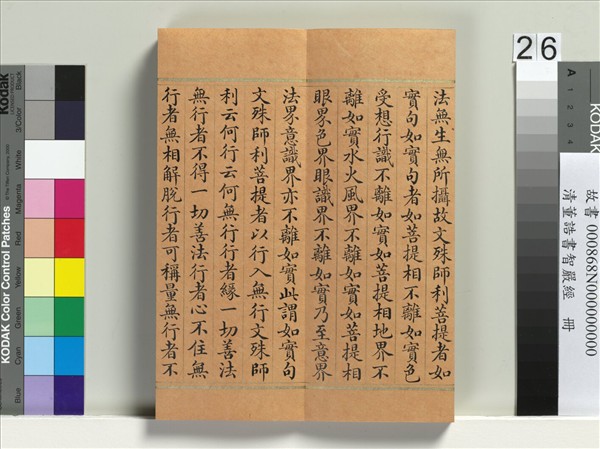 法無生無所攝故文殊師利菩提者如
實句如實句者如菩提相不離如實色
受想行識不離如實如菩提相地界不
離如實水火風界不離如實如菩提相
眼界色界眼識界不離如實乃至意界
法界意識界亦不離如實此謂如實句
文殊師利菩提者以行入無行文殊師
利云何行云何無行行者緣一切善法
無行者不得一切善法行者心不住無
行者無相解脫行者可稱量無行者不
26
A 1 2 3 4
KODAK
故書 000868N000000000
清董誥書智嚴經 冊
Kodak
KODAK Color Control Patches
Blue Cyan Green Yellow Red Magenta White 3/Color Black